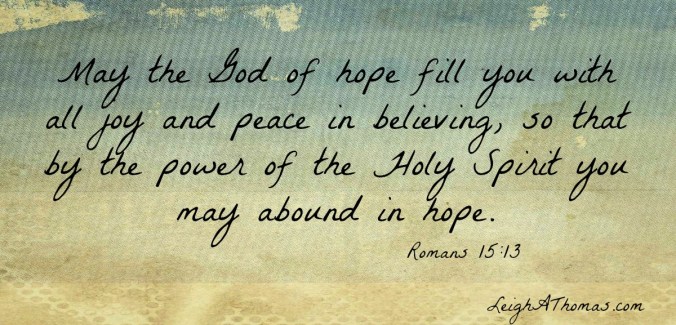 May the God of hope fill you with
all joy and peace in believing, so that
by the power of the Holy Spirit you
may abound in hope.
Romans 15:13
LeighAThomas.com